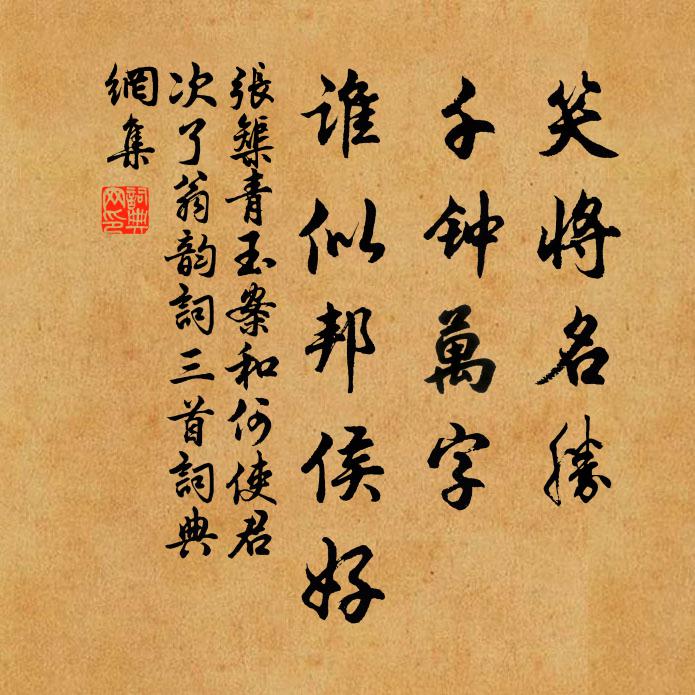 笑将名勝
千钟萬字
誰似邦侯好
張榘青玉案和何使君
次了翁韵詞三首詞典
網集
詞典
网印